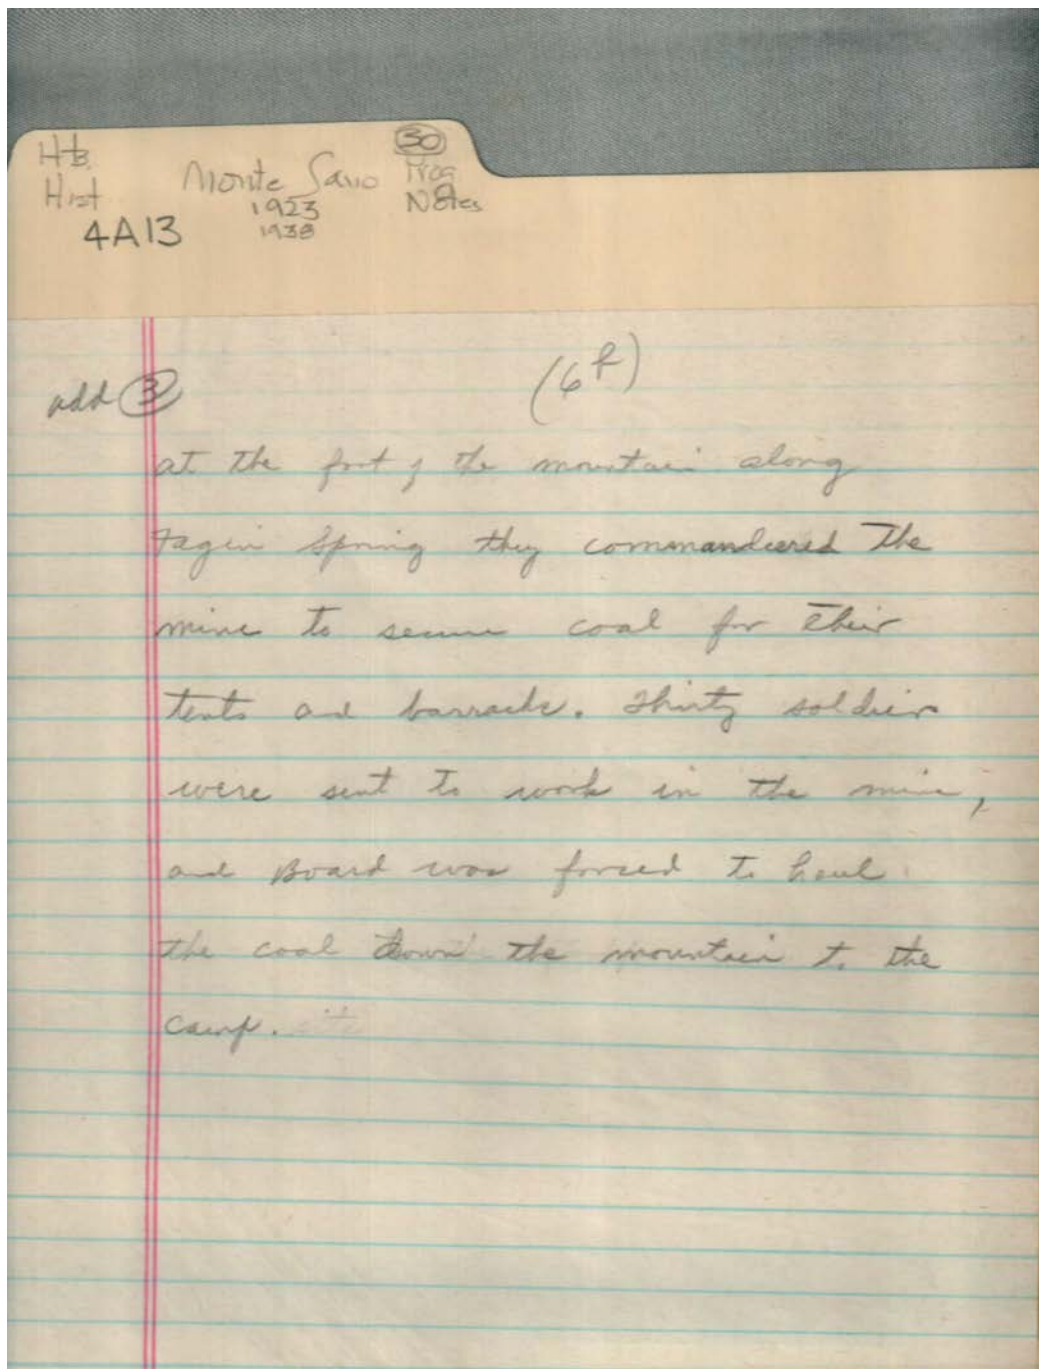 Hist
Monte Sano
1923
1938
30
Prog
Notes
4A13
add 3
(6 f)
at the foot of the mountain along
Fagin Spring they commandeered the
mine to secure coal for their
tents and barracks. Thirty soldiers
were sent to work in the mine,
and Board was forced to haul
the coal down the mountain to the
camp.